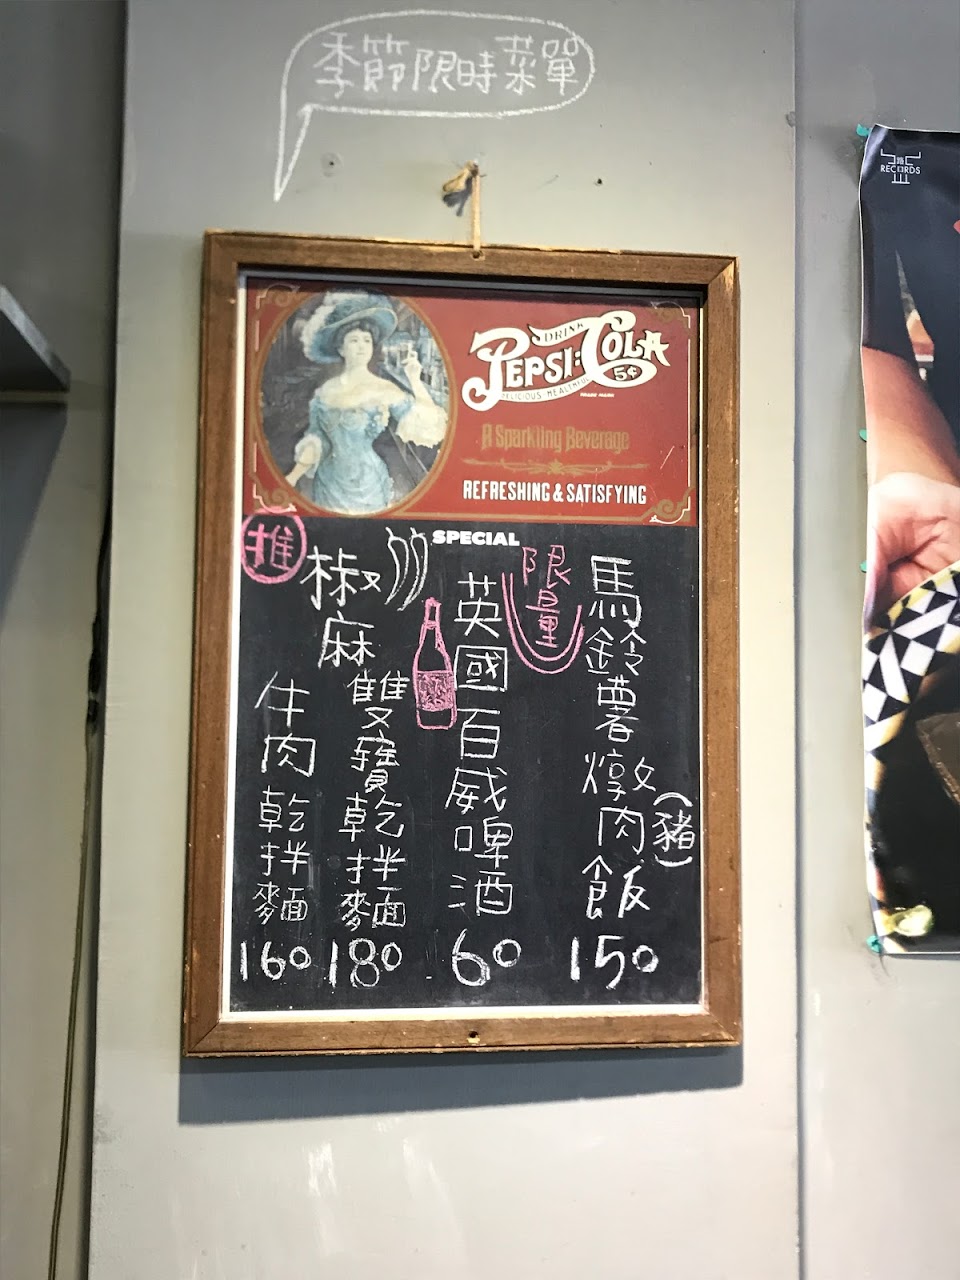 季節限時菜單
RECORDS
DRINK
PEPSI:COLA
5¢
DELICIOUS HEALTHFUL
TRADE MARK
A Sparkling Beverage
REFRESHING & SATISFYING
SPECIAL
限量
馬鈴薯燉肉飯
(豬)
150
英國百威啤酒
60
推
椒麻
雙寶乾拌麵
180
牛肉乾拌麵
160